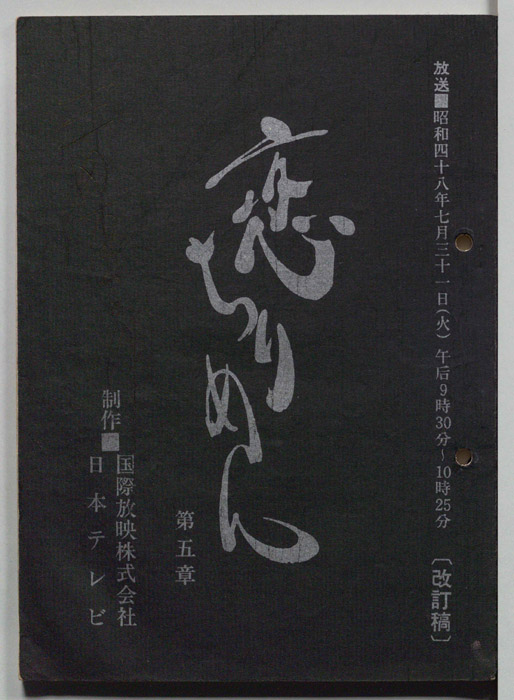 放送■昭和四十八年七月三十一日(火) 午后9時30分~10時25分 〔改訂稿〕
恋ちりめん
第五章
制作■国際放映株式会社
日本テレビ